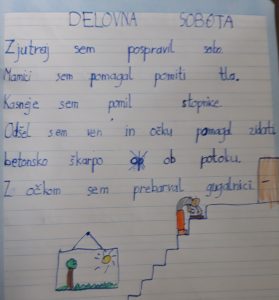 DELOVNA SOBOTA
Zjutraj sem pospravil sobo.
Mamici sem pomagal pomiti tla.
Kasneje sem pomil stopnice.
Odšel sem ven in očku pomagal zidati
betonsko škarpo ob potoku.
Z očkom sem prebarval gugalnici.